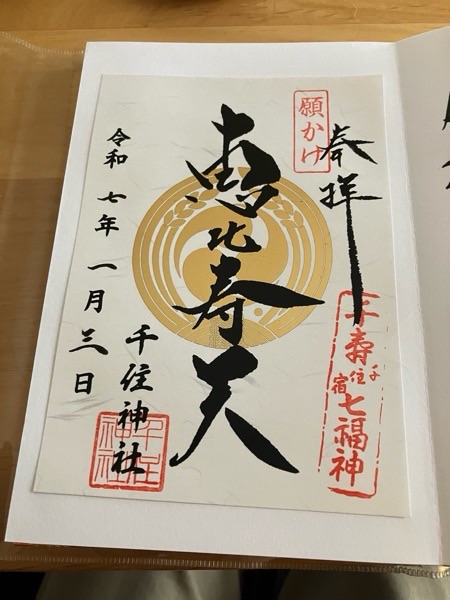 奉拝
願かけ
千壽
千住宿
七福神
恵比寿天
千住神社
千住神社
令和七年一月三日